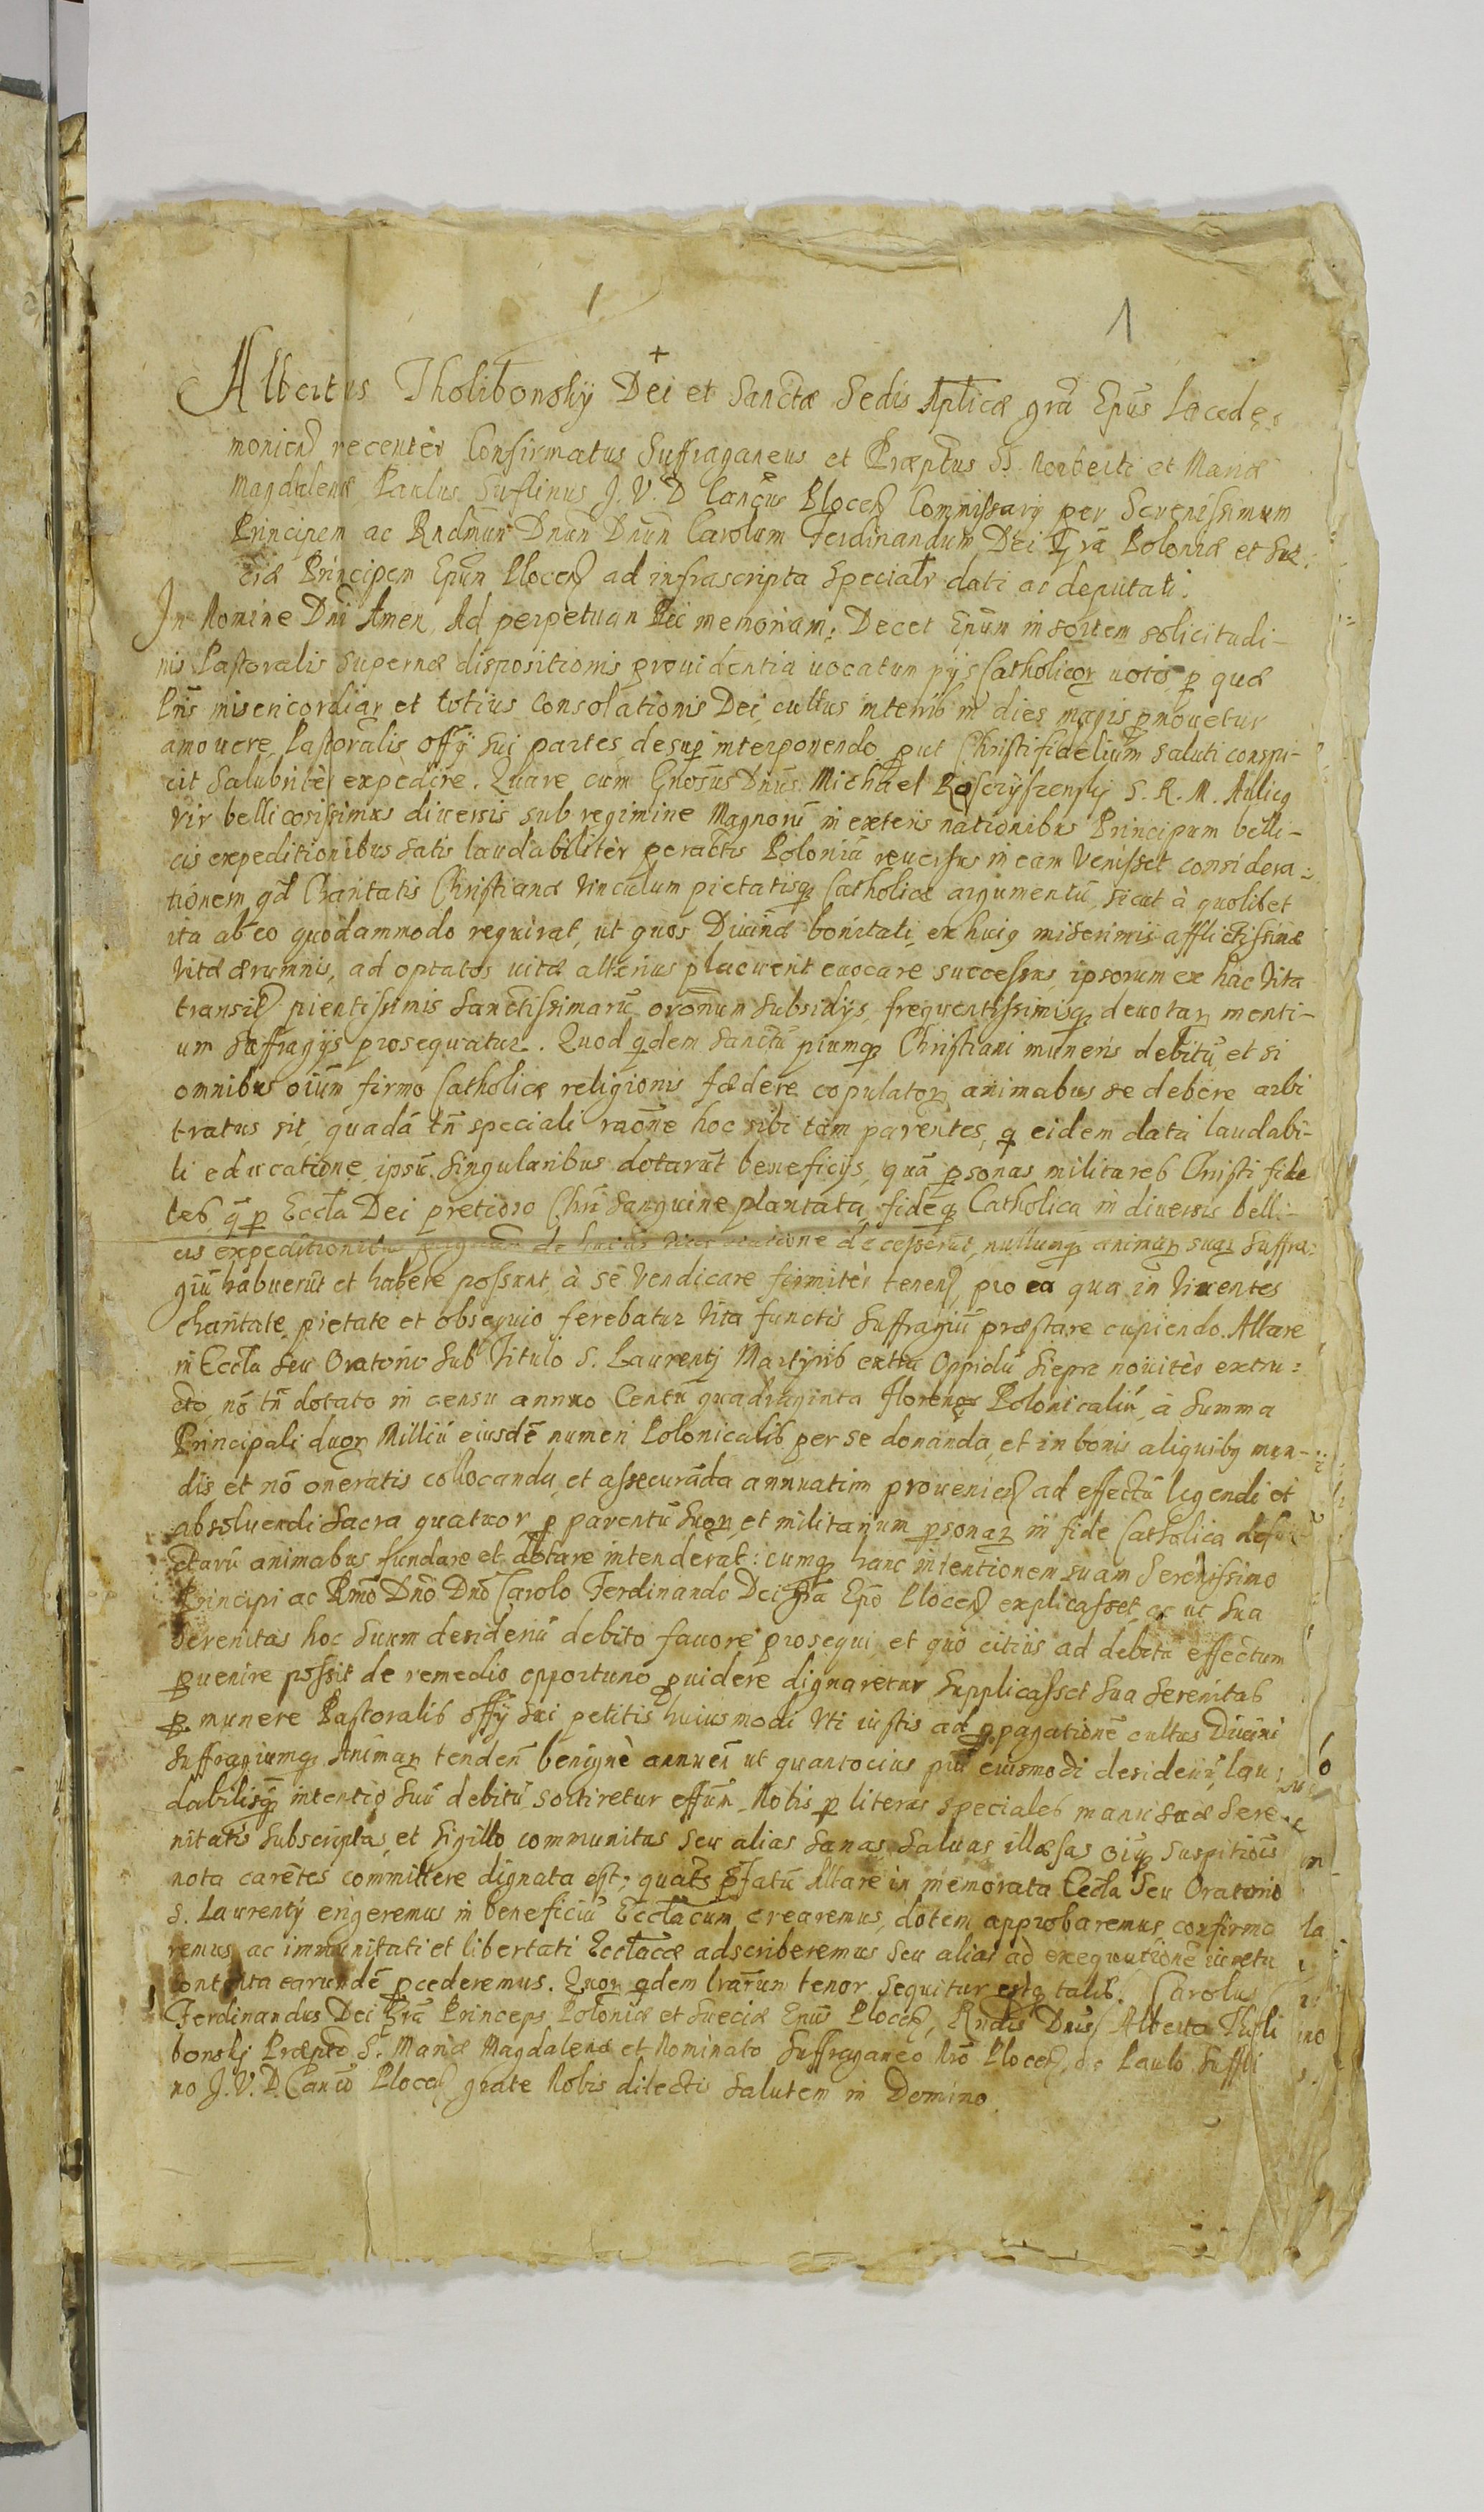 1 1
+
Albertus Tholibonsky Dei et Sanctæ Sedis Aplicæ grã Epũs Lacedę-
monień recentèr Confirmatus Suffraganeus et Præptus SS. Norberti et Mariæ
Magdalenæ Paulus Suflinus J. V. D Canc͠us Ploceñ Commissarij per Serenissimum
Principem ac Rndmum Dnũm Dnũm Carolum Ferdinandum Dei Grã Poloniæ et Sue-
ciæ Principem Epũm Ploceñ ad infrascripta specialr dati ac deputati.
In Nomine Dni Amen. Ad perpetuam Rei memoriam. Decet Epũm in sortem solicitudi-
nis Pastoralis supernæ dispositionis prouidentia uocatum pijs Catholicoꝝ uotis, ꝑ quæ
Pris misericordiaꝝ et totius consolationis Dei cultus interib in dies magis ꝓmouetur
amouere, Pastoralis offÿ sui partes desuꝑ interponendo, ꝓut Christifidelium saluti conspi-
cit salubritèr expèdire. Quare cum Gnosus Dnus Michael Roscÿszensky S. R. M. Aulicꝯ
vir bellicosissimus diuersis sub regimine Magnorũ in exteris nationibus Principum belli-
cis expeditionibus satis laudabilitèr peractis Poloniã reuersus in eam venisset considera-
tionem, qd Charitatis Christianæ vinculum pietatisq Catholicæ argumentũ, sicut à quolibet
ita ab eo quodammodo requirat, ut quos Diuinæ bonitati, ex huiꝯ miserimis afflictissimæ
vitæ ærumnis, ad optatos uitæ alterius placuerit euocare successus, ipsorum ex hac vita
transitꝰ pientissimis sanctissimarũ orõnum subsidijs, frequentissimisq deuotaꝝ menti-
um suffragijs prosequatur. Quod qdem sanctũ piumq Christiani muneris debitũ, et si
omnibus oium firmo Catholicæ religionis fœdere copulatoꝝ animabus se debere arbi
tratus sit, quadã tñ speciali raõne hoc sibi tam parentes, q eidem data laudabi-
li educatione, ipsũ singularibus dotarũt beneficijs, quã ꝑsonas militares Christi fide
les, q̃ ꝑ Eccła Dei pretioso Chri Sanguine plantata, fideq Catholica in diuersis belli-
cis expeditionibus pugnam de huius vitæ statione decesserũt, nullumq animaꝝ suaꝝ suffra-
giũ habuerũt et habere possunt, à se vendicare firmitèr tenenꝰ, pro ea qua in viuentes
charitate, pietate et obsequio ferebatur vita functis Suffragiũ præstare cupiendo. Altare
in Eccła seu Oratorio sub Titulo S. Laurentij Martyris extra Oppidũ Siepre nouitèr extru-
cto, nõ tñ dotato in censu annuo Centũ quadraginta florenoꝝ Polonicaliũ, à Summa
Principali duoꝝ Milliũ eiusdẽ numeri Polonicalis per se donanda, et in bonis aliquibꝯ mun-
dis et nõ oneratis collocanda, et assecurãda annuatim prouenienꝰ ad effectũ legendi et
absoluendi sacra quatuor ꝑ parentũ suoꝝ et militarium ꝑsonaꝝ in fide Catholica defun-
ctarũ animabus fundare et dotare intenderat: cumq hanc intentionem suam Serenissimo
Principi ac Rmõ Dnõ Dnõ Carolo Ferdinando Dei Grã Epõ Ploceñ explicasset, ac ut Sua
Serenitas hoc suum desideriũ debito fauore prosequi, et quò citius ad debitũ effectum
ꝑuenire possit de remedio opportuno ꝓuidere dignaretur supplicasset Sua Serenitas
ꝑ munere Pastoralis offÿ sui petitis huiusmodi uti iustis ad ꝓpagationẽ cultus Diuini
suffragiumq Animaꝝ tendeñ benignè annueñ ut quantocius piũ eiusmodi desideriũ, lau
dabilisq intentio suũ debitũ sortiretur effũm. Nobis ꝑ literas speciales manu suæ Sere
nitatis subscriptas, et sigillo communitas seu alias sanas saluas illæsas oiuq suspitiõis
nota carẽtes committere dignata est; quatš p̃fatũ Altare in memorata Eccła seu Oratorio
S. Laurentij erigeremus in beneficiũ Ecclacum crearemus, dotem approbaremus, confirma
remus ac immunitati et libertati Ecclacæ adscriberemus seu alias ad exequutionẽ iuxta
contenta earundẽ ꝓcederemus. Quoꝝ qdem lrarum tenor sequitur estq talis. Carolus
Ferdinandus Dei Grã Princeps Poloniæ et Sueciæ Epũs Ploceñ, Rndis Dnis Alberto Tholi
bonsky Præpto S. Mariæ Magdalenæ et Nominato Suffraganeo Nrõ Ploceñ, ac Paulo Suffli
no J. V. D. Canco Ploceñ grate Nobis dilectis salutem in Domino.